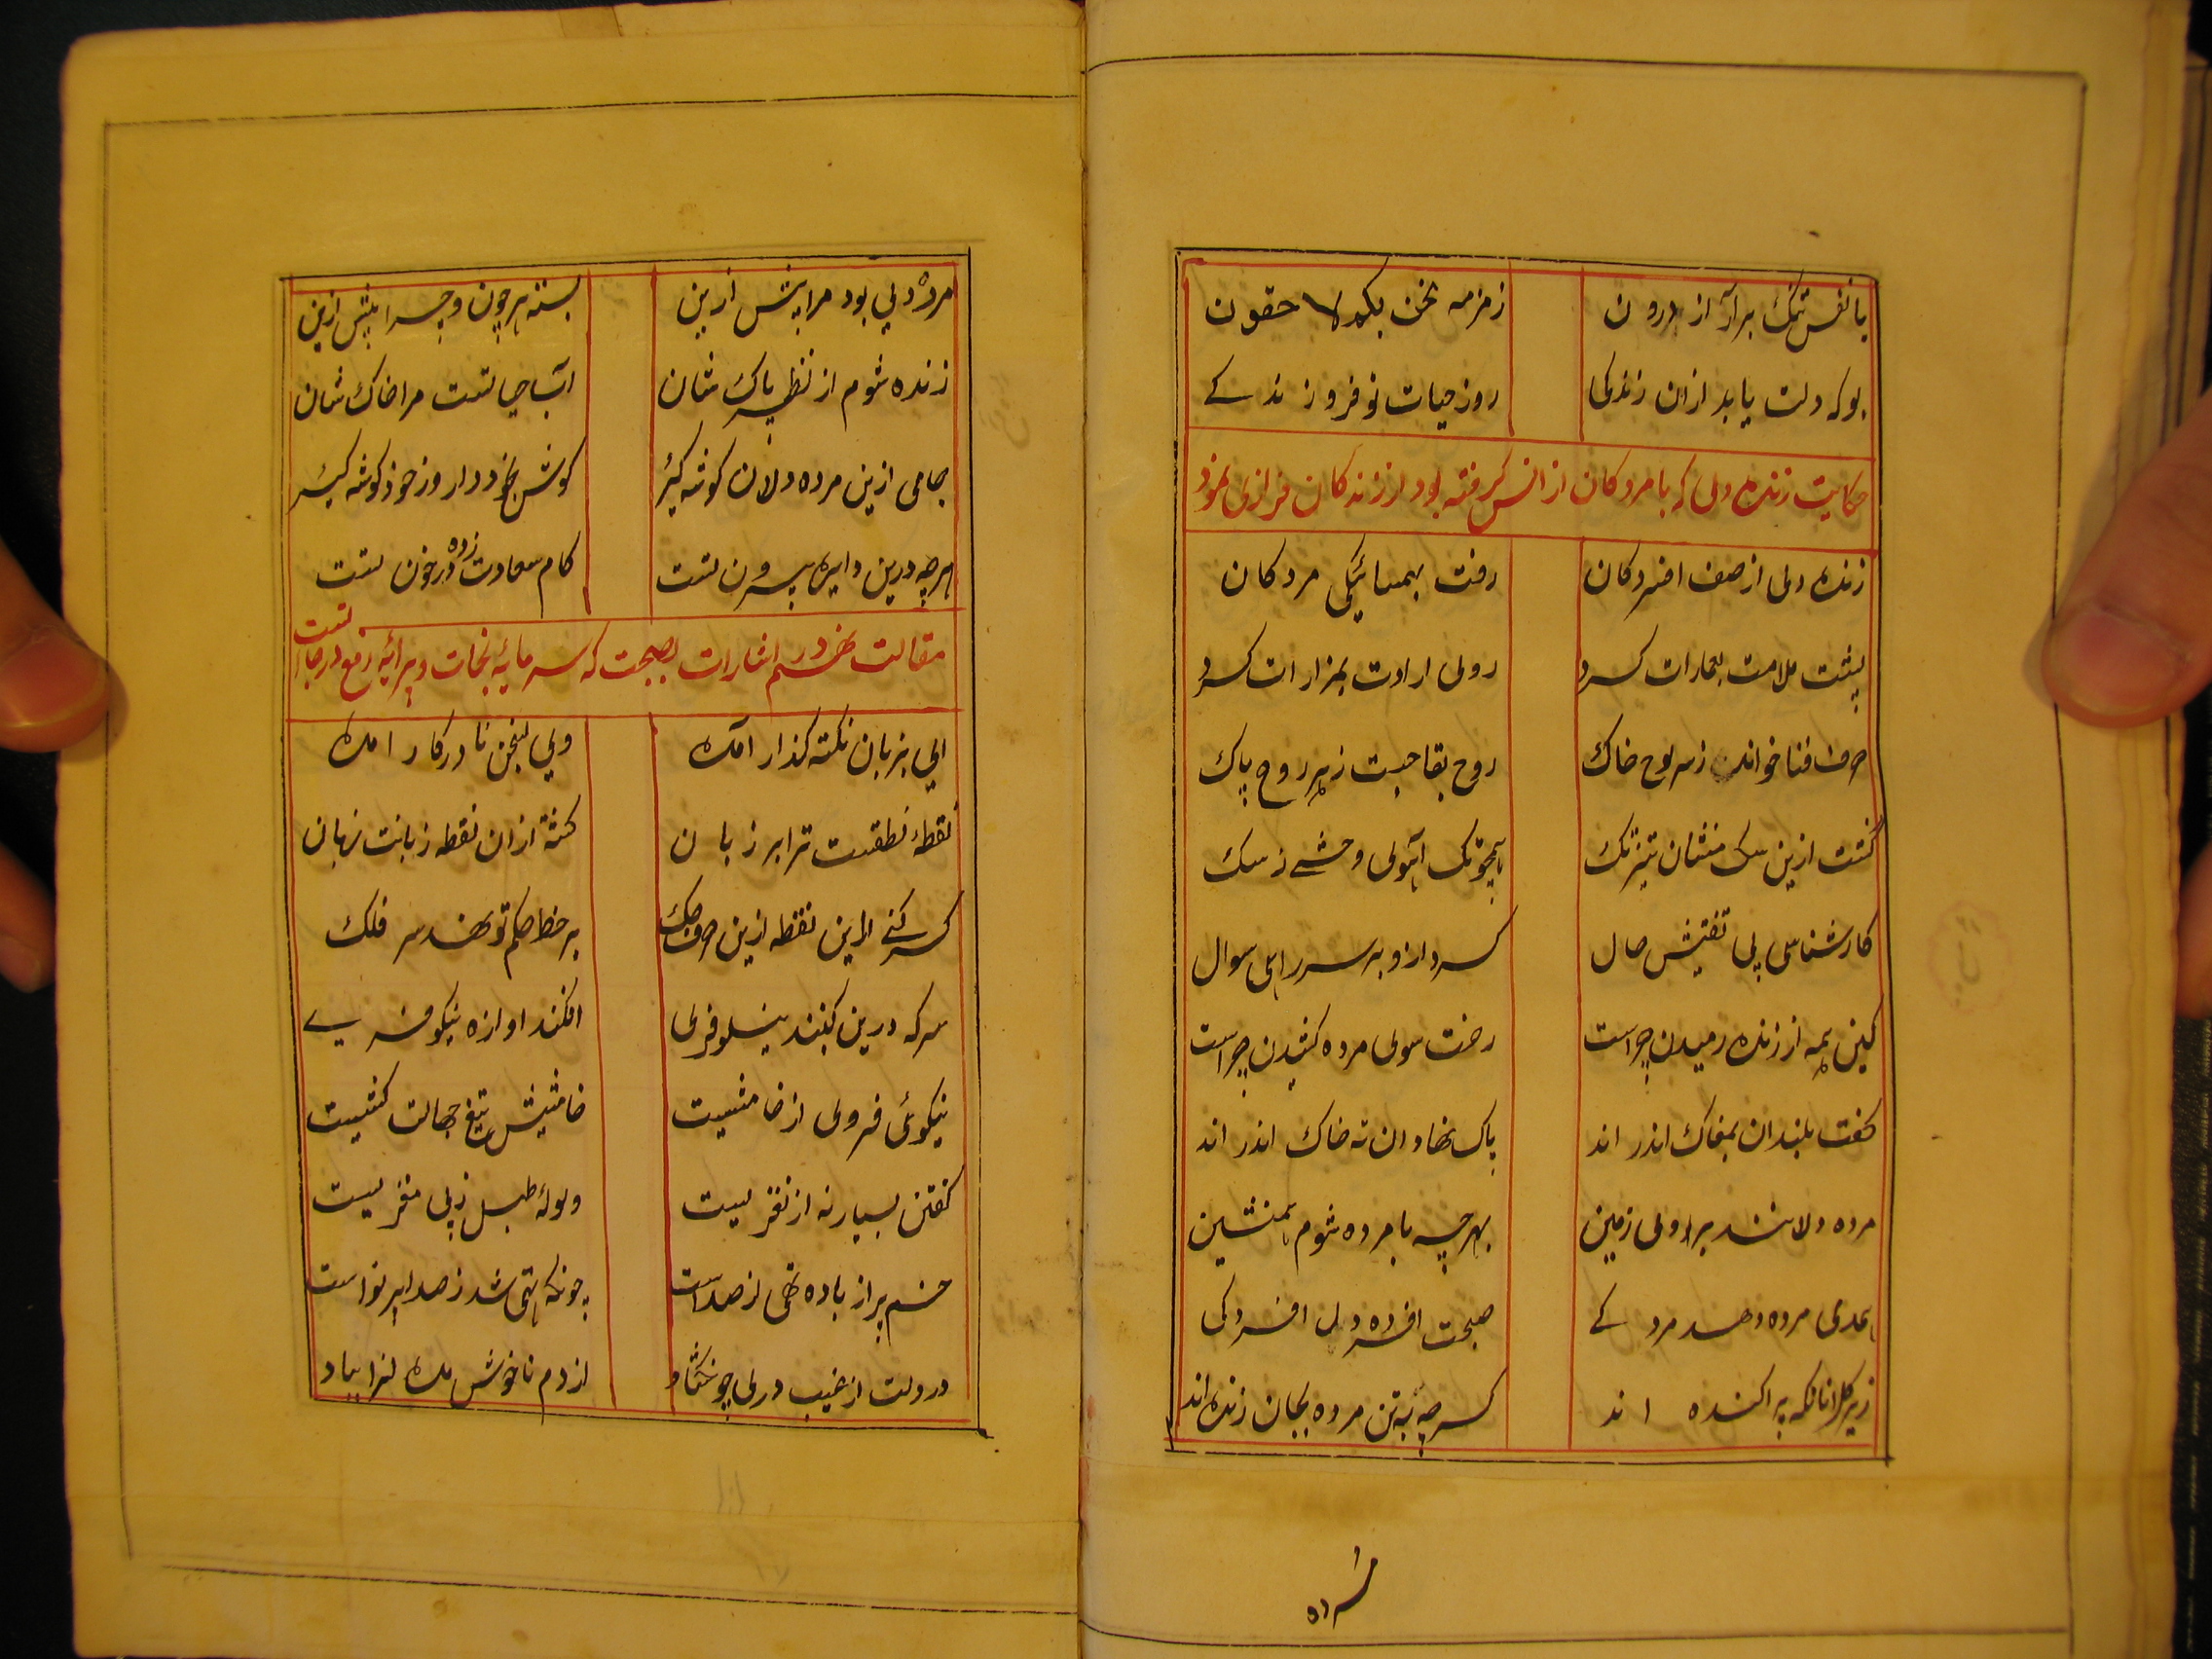 با نفس تنک برآر از درون زمزمه نحن بکم لا حقون
بوکه دلت یابد ازان زندکی روز حیات تو فروزندکے
حکایت زنده دلی که با مردکان از انس کرفته بود از زندکان فرازی نمود
زنده دلی از صف افسردکان رفت بهمسائیکی مردکان
پشت ملامت بعمارات کرد روی ارادت بمزارات کرد
حرف فنا خوانده ز سر لوح خاک روح بقا جست ز هر روح پاک
کشت ازین سک منشان تیزتک همچو تک آهوی وحشے ز سک
کارشناسی پی تفتیش حال کرد ازو بر سر راهی سوال
کین همه از زنده رمیدن چراست رخت سوی مرده کشیدن چراست
کفت بلندان بمغاک اندر اند پاک نهادان ته خاک اندر اند
مرده دلانند بر اوی زمین بهر چه با مرده شوم همنشین
همدمی مرده دهد مردکے صحبت افسرده دلی افسردکی
زیر کل انانکه پراکنده اند کرچه به تن مرده بجان زنده اند
مرده دلی بود مرا پیش ازین بسته بر چون و چرا پیش ازین
زنده شوم از نظر پاک شان آب حیاتست مرا خاک شان
جامی ازین مرده دلان کوشه کیر کوش بخود دار و ز خود کوشه کیر
هرچه درین دایره بیرون تست کام سعادت زده در خون تست
مقالت نهم در اشارات بصحبت که سرمایه نجات و پیرایه رفع درجاتست
ای بزبان نکته کذار آمده وی بسخن نادر کار آمده
نقطه نطقست ترا بر زبان کشته ازان نقطه زبانت زبان
کر کنے این نقطه ازین حرف حک بر خط حکم تو نهد سر فلک
هر که درین کنبد نیلوفری افکند اوازه نیکوفریے
نیکوئی فروی از خامشیست خامشیش تیغ جهالت کشیست
کفتن بسیار نه از نغزیست ولوله طبل ز بی مغزیست
خم پر از باده تهی از صداست چونکه تهی شد ز صدا پر نواست
در دلت از غیب دری چون کشاد از دم ناخوش مده انرا بباد